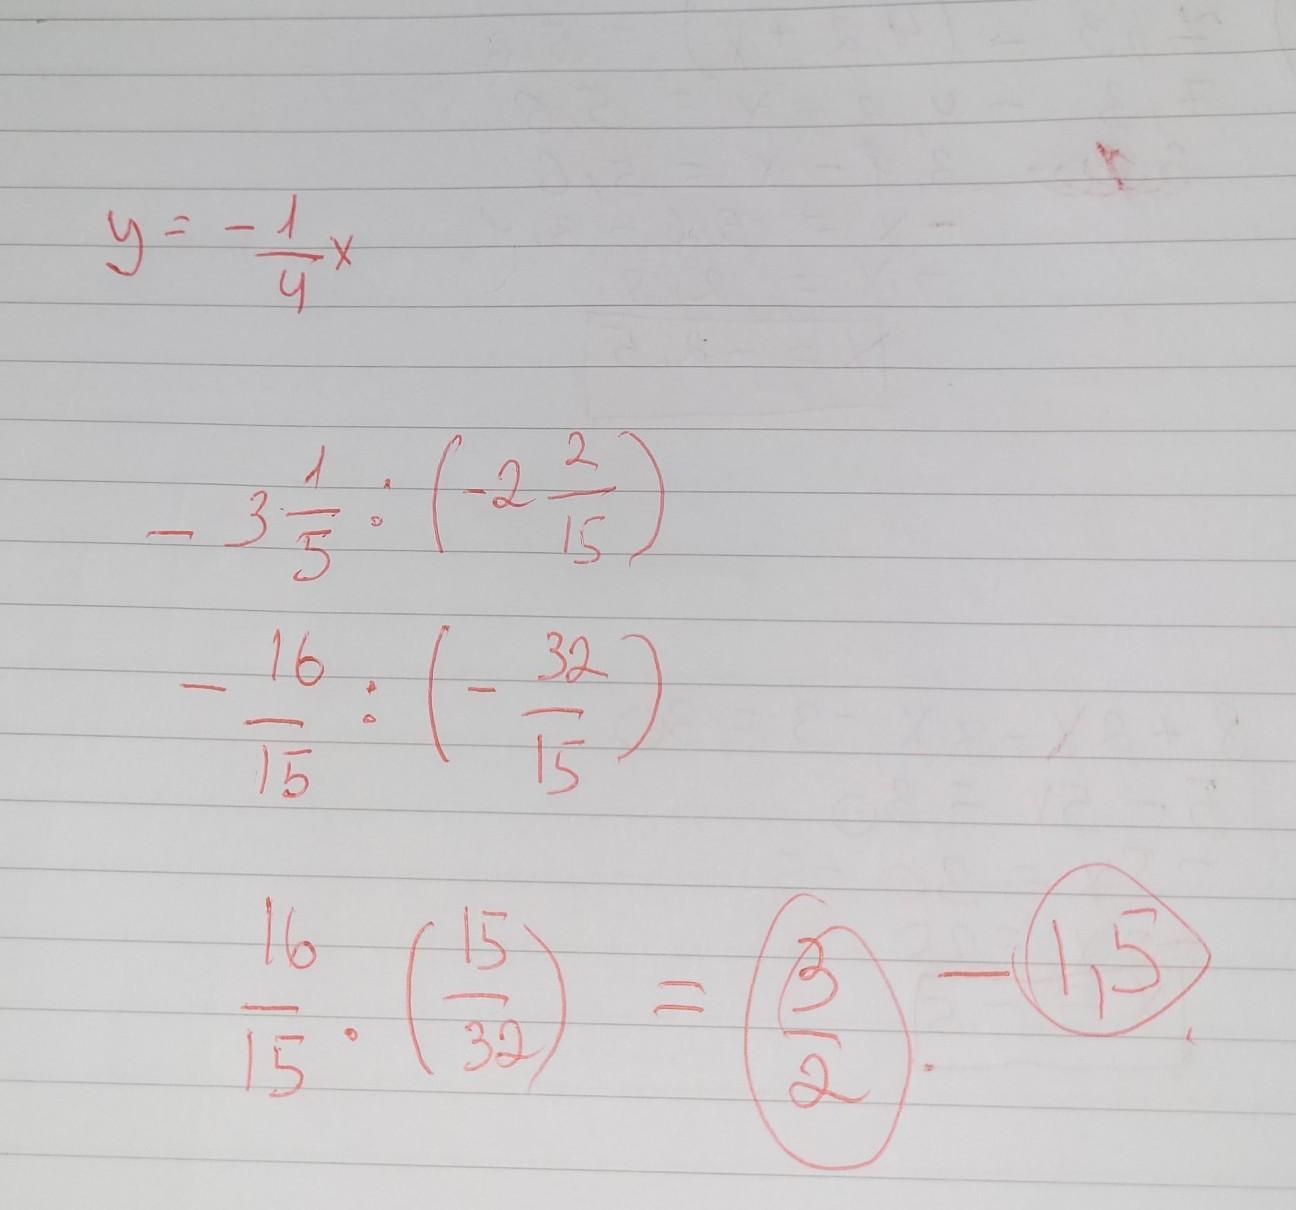 y = -1/4 x
- 3 1/5 : (-2 2/15)
- 16/15 : (- 32/15)
16/15 · (15/32) = 3/2 . - 1,5